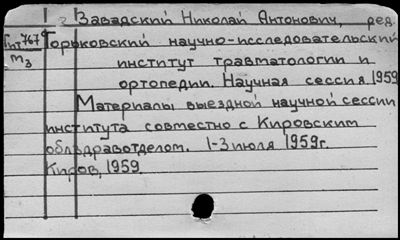 г Завадский Николай Антонович, ред.
Гпт 767
Горьковский научно-исследовательский
м3
институт травматологии и
ортопедии. Научная сессия. 1959
Материалы выездной научной сессии
института совместно с Кировским
облздравотделом. 1-3 июля 1959г.
Киров, 1959.